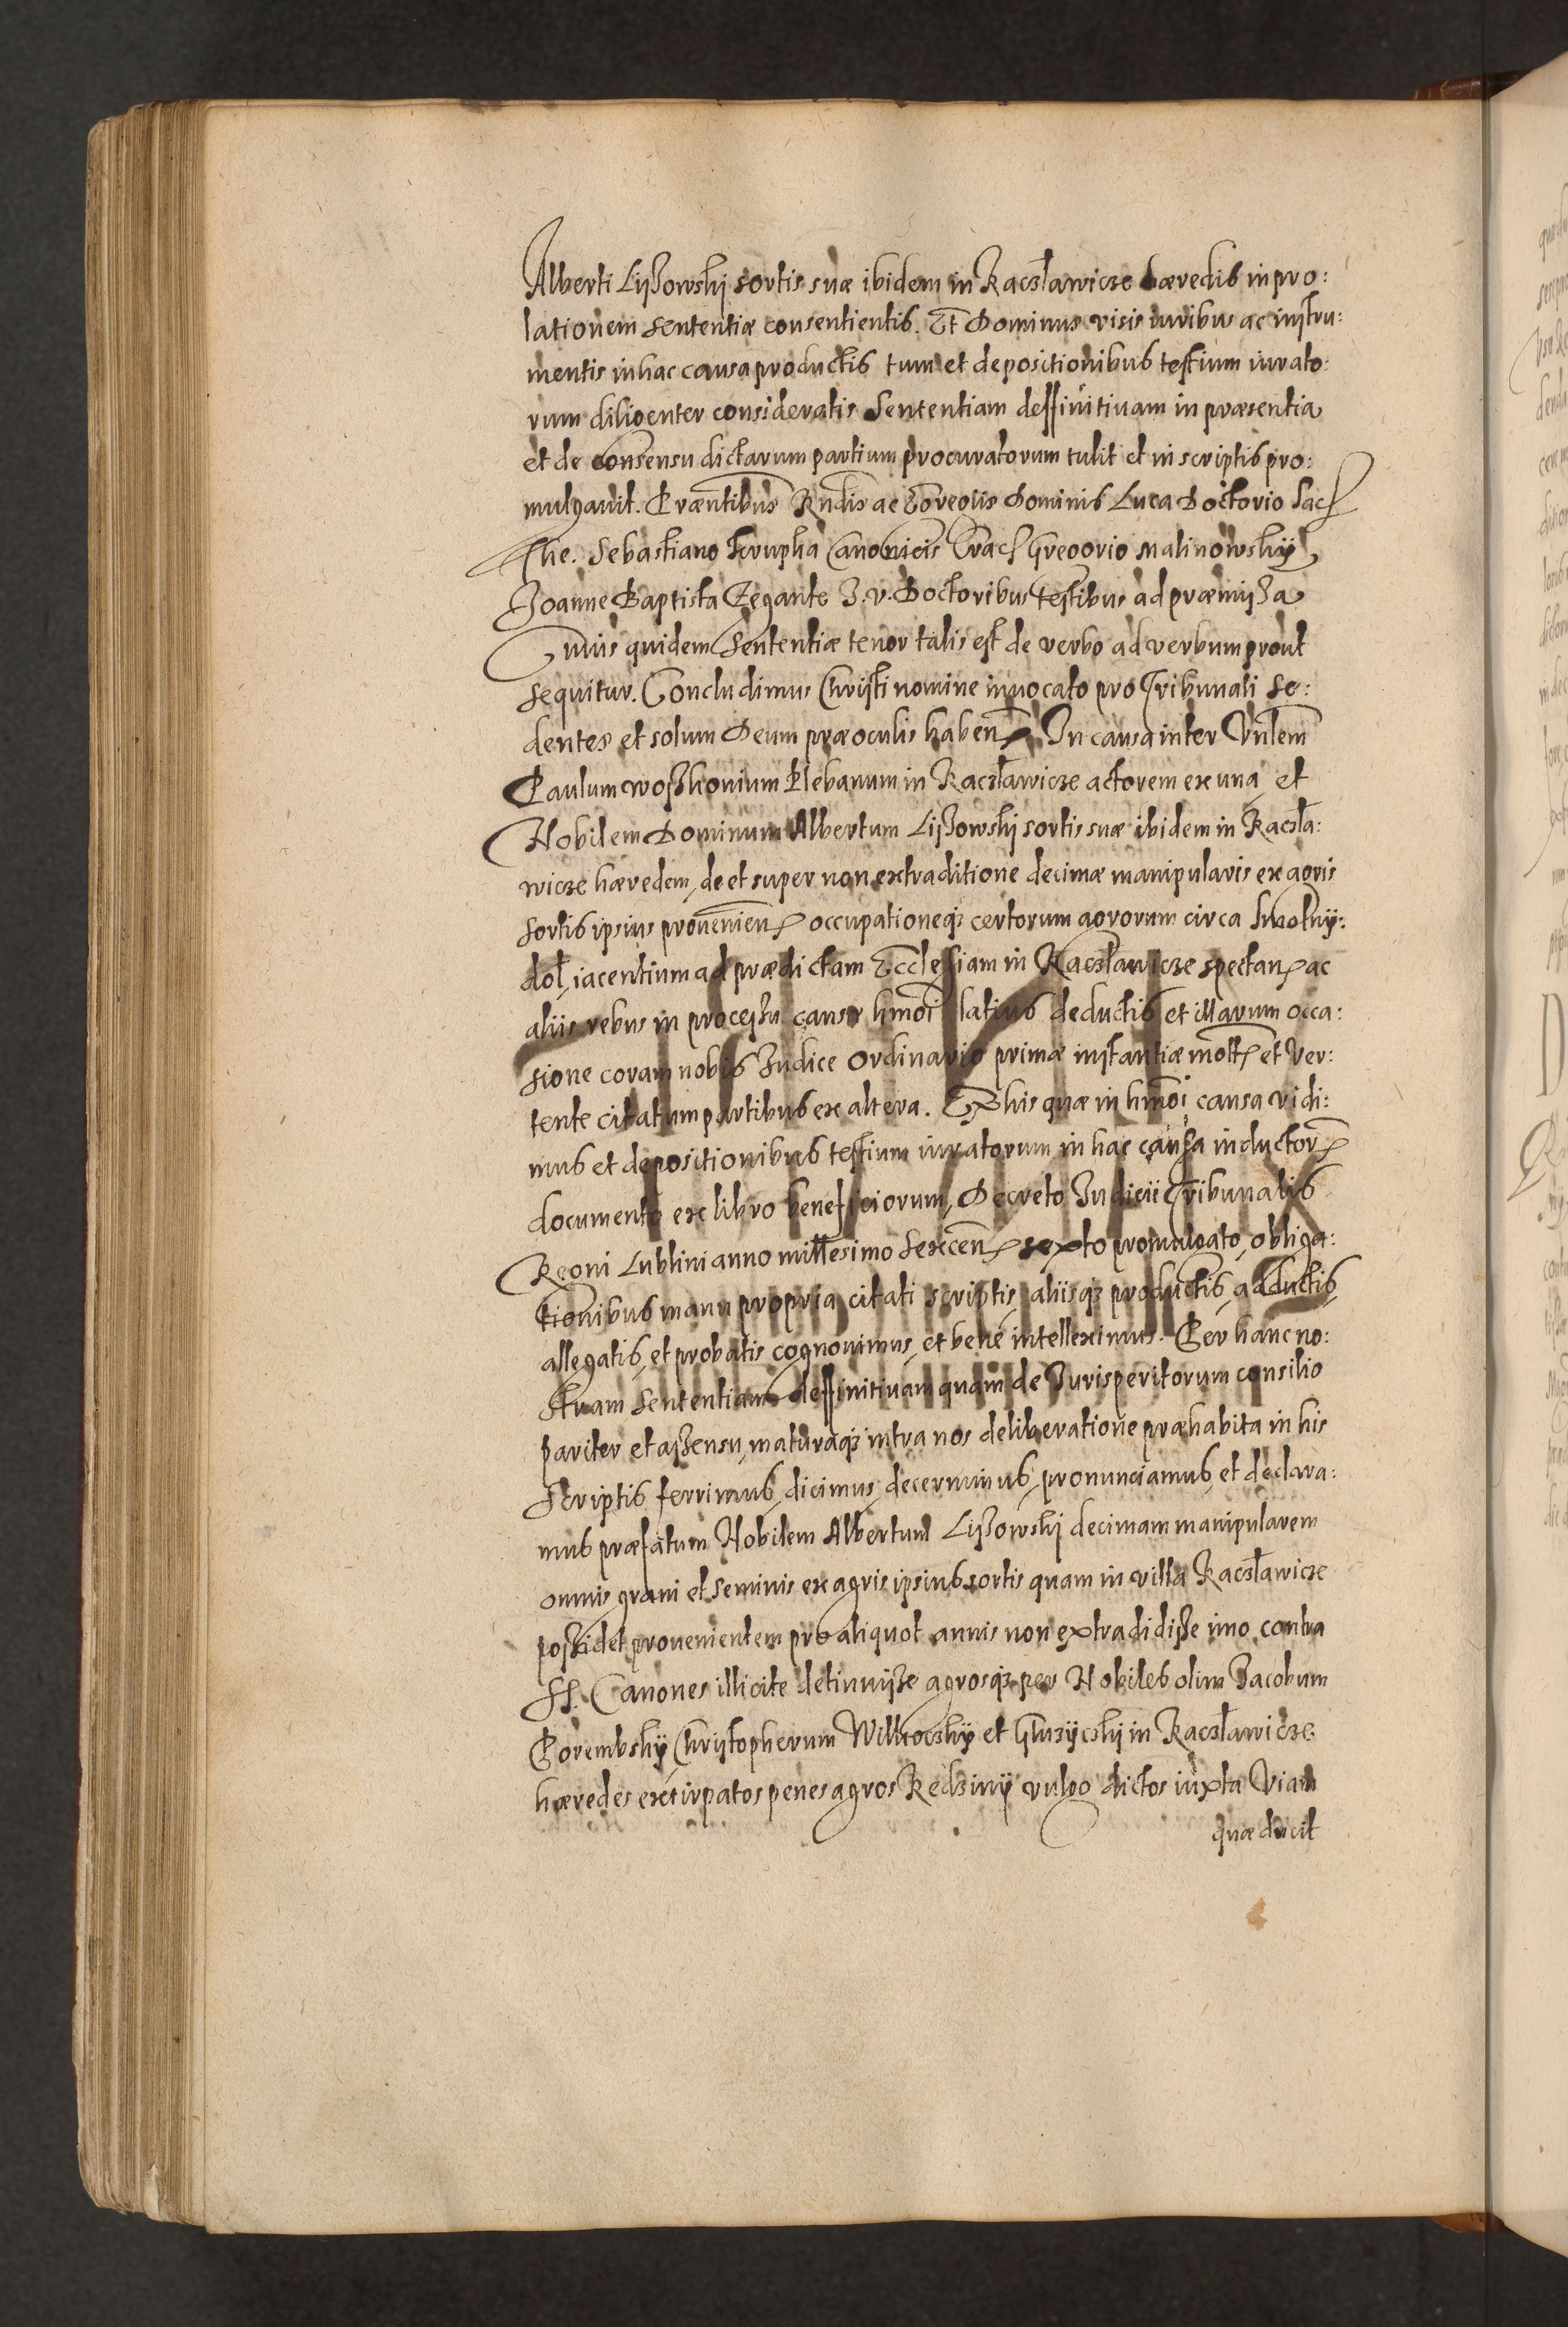 Alberti Lissowskj sortis suæ ibidem in Racsławicze hæredis in pro:
lationem sententiæ consentientis. Et Dominus visis iuribus ac instru:
mentis in hac causa productis tum et depositionibus testium iurato:
rum diligenter consideratis Sententiam deffinitiuam in præsentia
et de Consensu dictarum partium procuratorum tulit et in scriptis pro:
mulgauit. Præntibus Rndis ac Egregiis Dominis Luca Doctorio Sac
The. Sebastiano Krupka Canonicis Crac Gregorio Malinowskÿ
Joanne Baptista Zegante J. v. Doctoribus testibus ad præmissa
Cuius quidem Sententiæ tenor talis est de verbo ad verbum prout
sequitur. Concludimus Christi nomine inuocato pro Tribunali se:
dentes et solum Deum præ oculis haben. In causa inter Vnlem
Paulum Woszkonium Plebanum in Racsławicze actorem ex una et
Nobilem Dominum Albertum Lissowskj sortis suæ ibidem in Racsła:
wicze hæredem, de et super non extraditione decimæ manipularis ex agris
sortis ipsius prouenien occupationeq; certorum agrorum circa Smotnÿ:
dol, iacentium ad prædictam Ecclesiam in Racsławicze spectan ac
aliis rebus in processu causæ hmoi latius deductis et illarum occa:
sione coram nobis Iudice Ordinario primæ instantiæ mot et Ver:
tente citatum partibus ex altera. Ex his quæ in hmoi causa vidi:
mus et depositionibus testium iuratorum in hac causa inductor
documento ex libro beneficiorum, Decreto Iudicii Tribunalis
Regni Lublini anno millesimo sexcen sexto promulgato, obliga:
tionibus manu propria citati scriptis, aliisq; productis, adductis,
allegatis, et probatis cognouimus, et bene intelleximus. Per hanc no:
stram sententiam deffinitiuam quam de Iurisperitorum consilio
pariter et assensu, maturaq; intra nos deliberatione præhabita in his
Scriptis ferrimus, dicimus, decernimus, pronunciamus, et declara:
mus præfatum Nobilem Albertum Lissowskj decimam manipularem
omnis grani et seminis ex agris ipsius sortis quam in villa Racsławicze
possidet prouenientem pro aliquot annis non extradidisse imo contra
SS. Canones illicite detinuisse agrosq; per Nobiles olim Jacobum
Porembskÿ Christopherum Wilkockÿ et Gluzÿcskj in Racsławicze
hæredes extirpatos penes agros Redzinÿ vulgo dictos iuxta Viam
quæ ducit